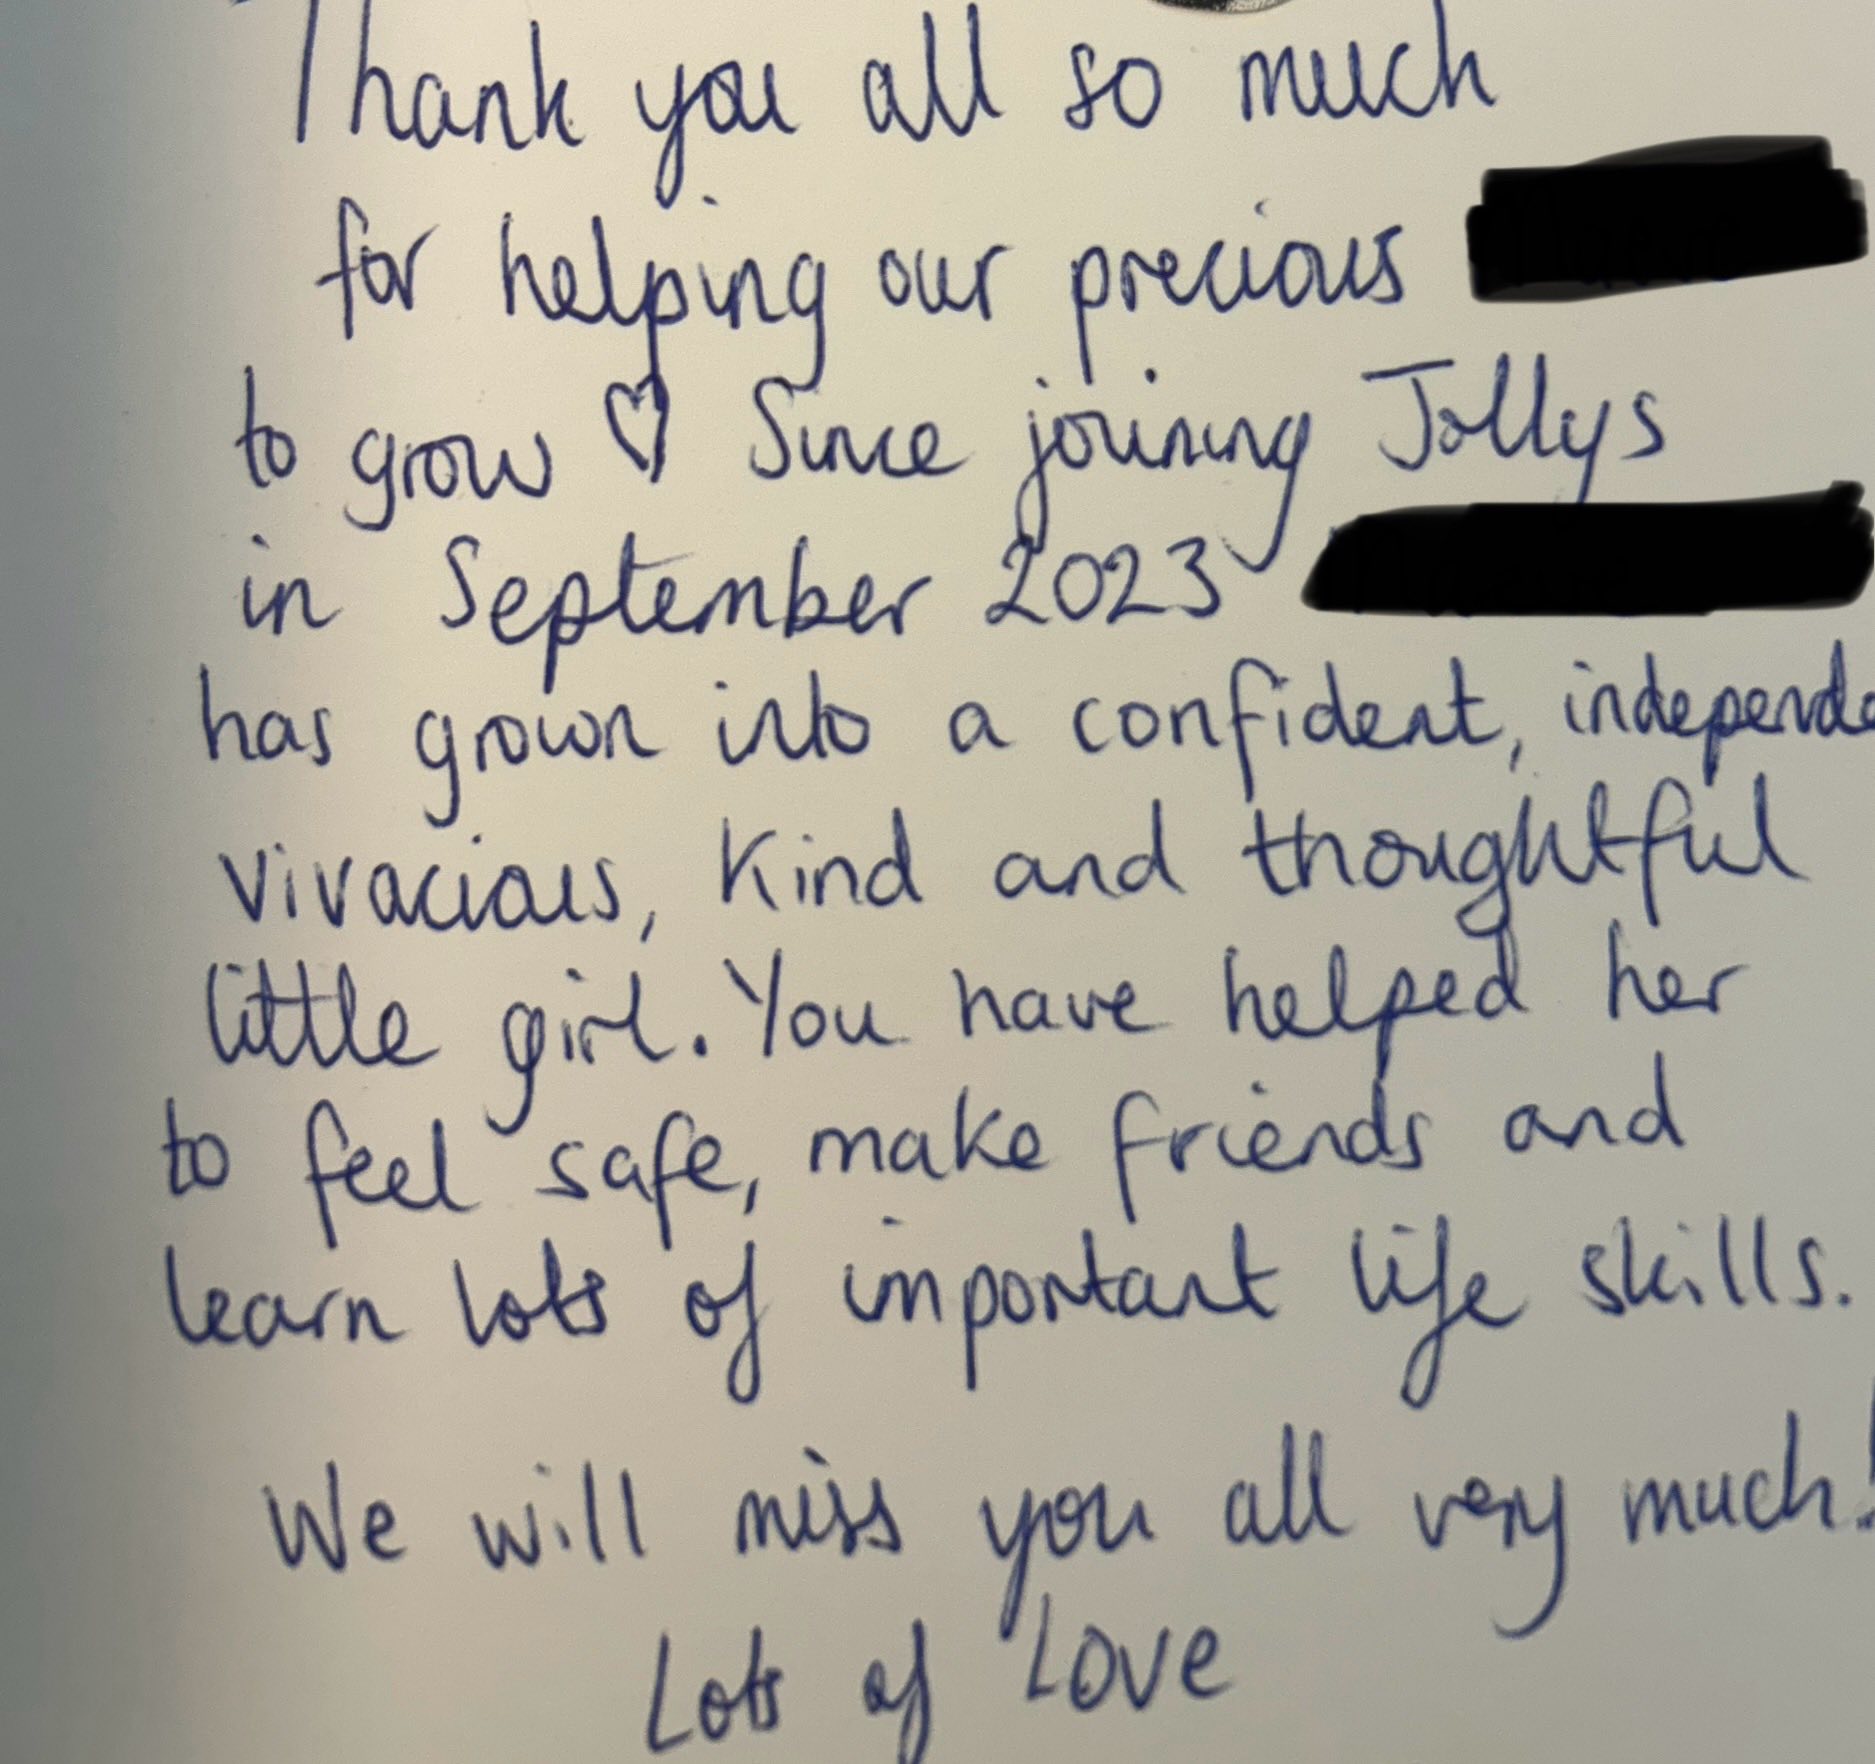 Thank you all so much
for helping our precious
to grow ♡ Since joining Jollys
in September 2023
has grown into a confident, independe
vivacious, kind and thoughtful
little girl. You have helped her
to feel safe, make friends and
learn lots of important life skills.
We will miss you all very much!
Lots of Love